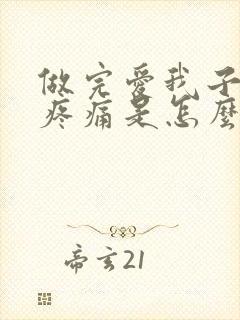 做完愛我子
疼痛是怎麼
帝玄21